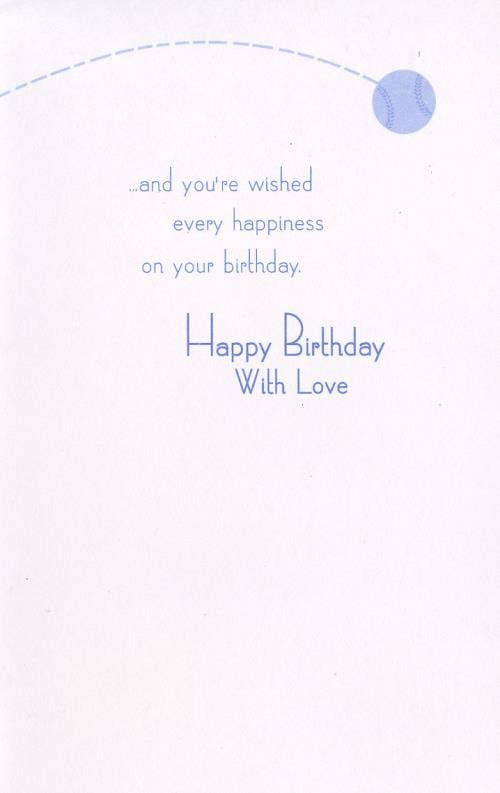 ...and you're wished
every happiness
on your birthday.
Happy Birthday
With Love